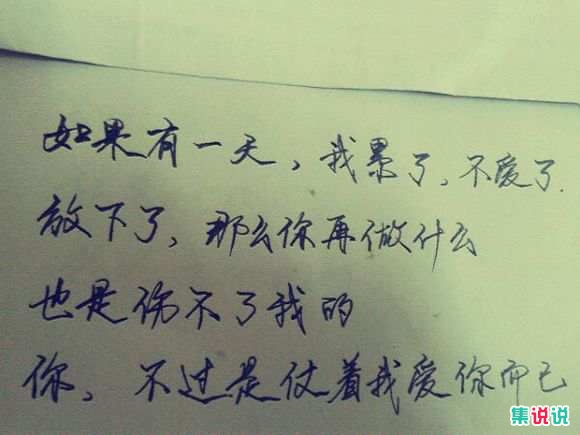 如果有一天，我累了，不爱了.
放下了，那么你再做什么
也是伤不了我的
你，不过是仗着我爱你而已
集说说